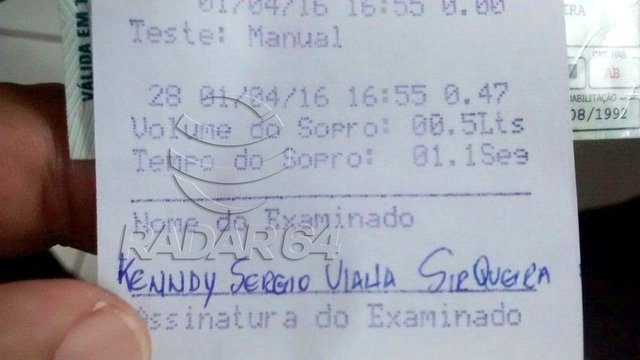 01/04/16 16:55 0.00
Teste: Manual
28 01/04/16 16:55 0.47
Volume do Sopro: 00.5Lts
Tempo do Sopro: 01.1Seg
Nome do Examinado
RADAR 64
KENNDY SERGIO VIANA SIRQUEIRA
Assinatura do Examinado
VÁLIDA EM T
AB
08/1992